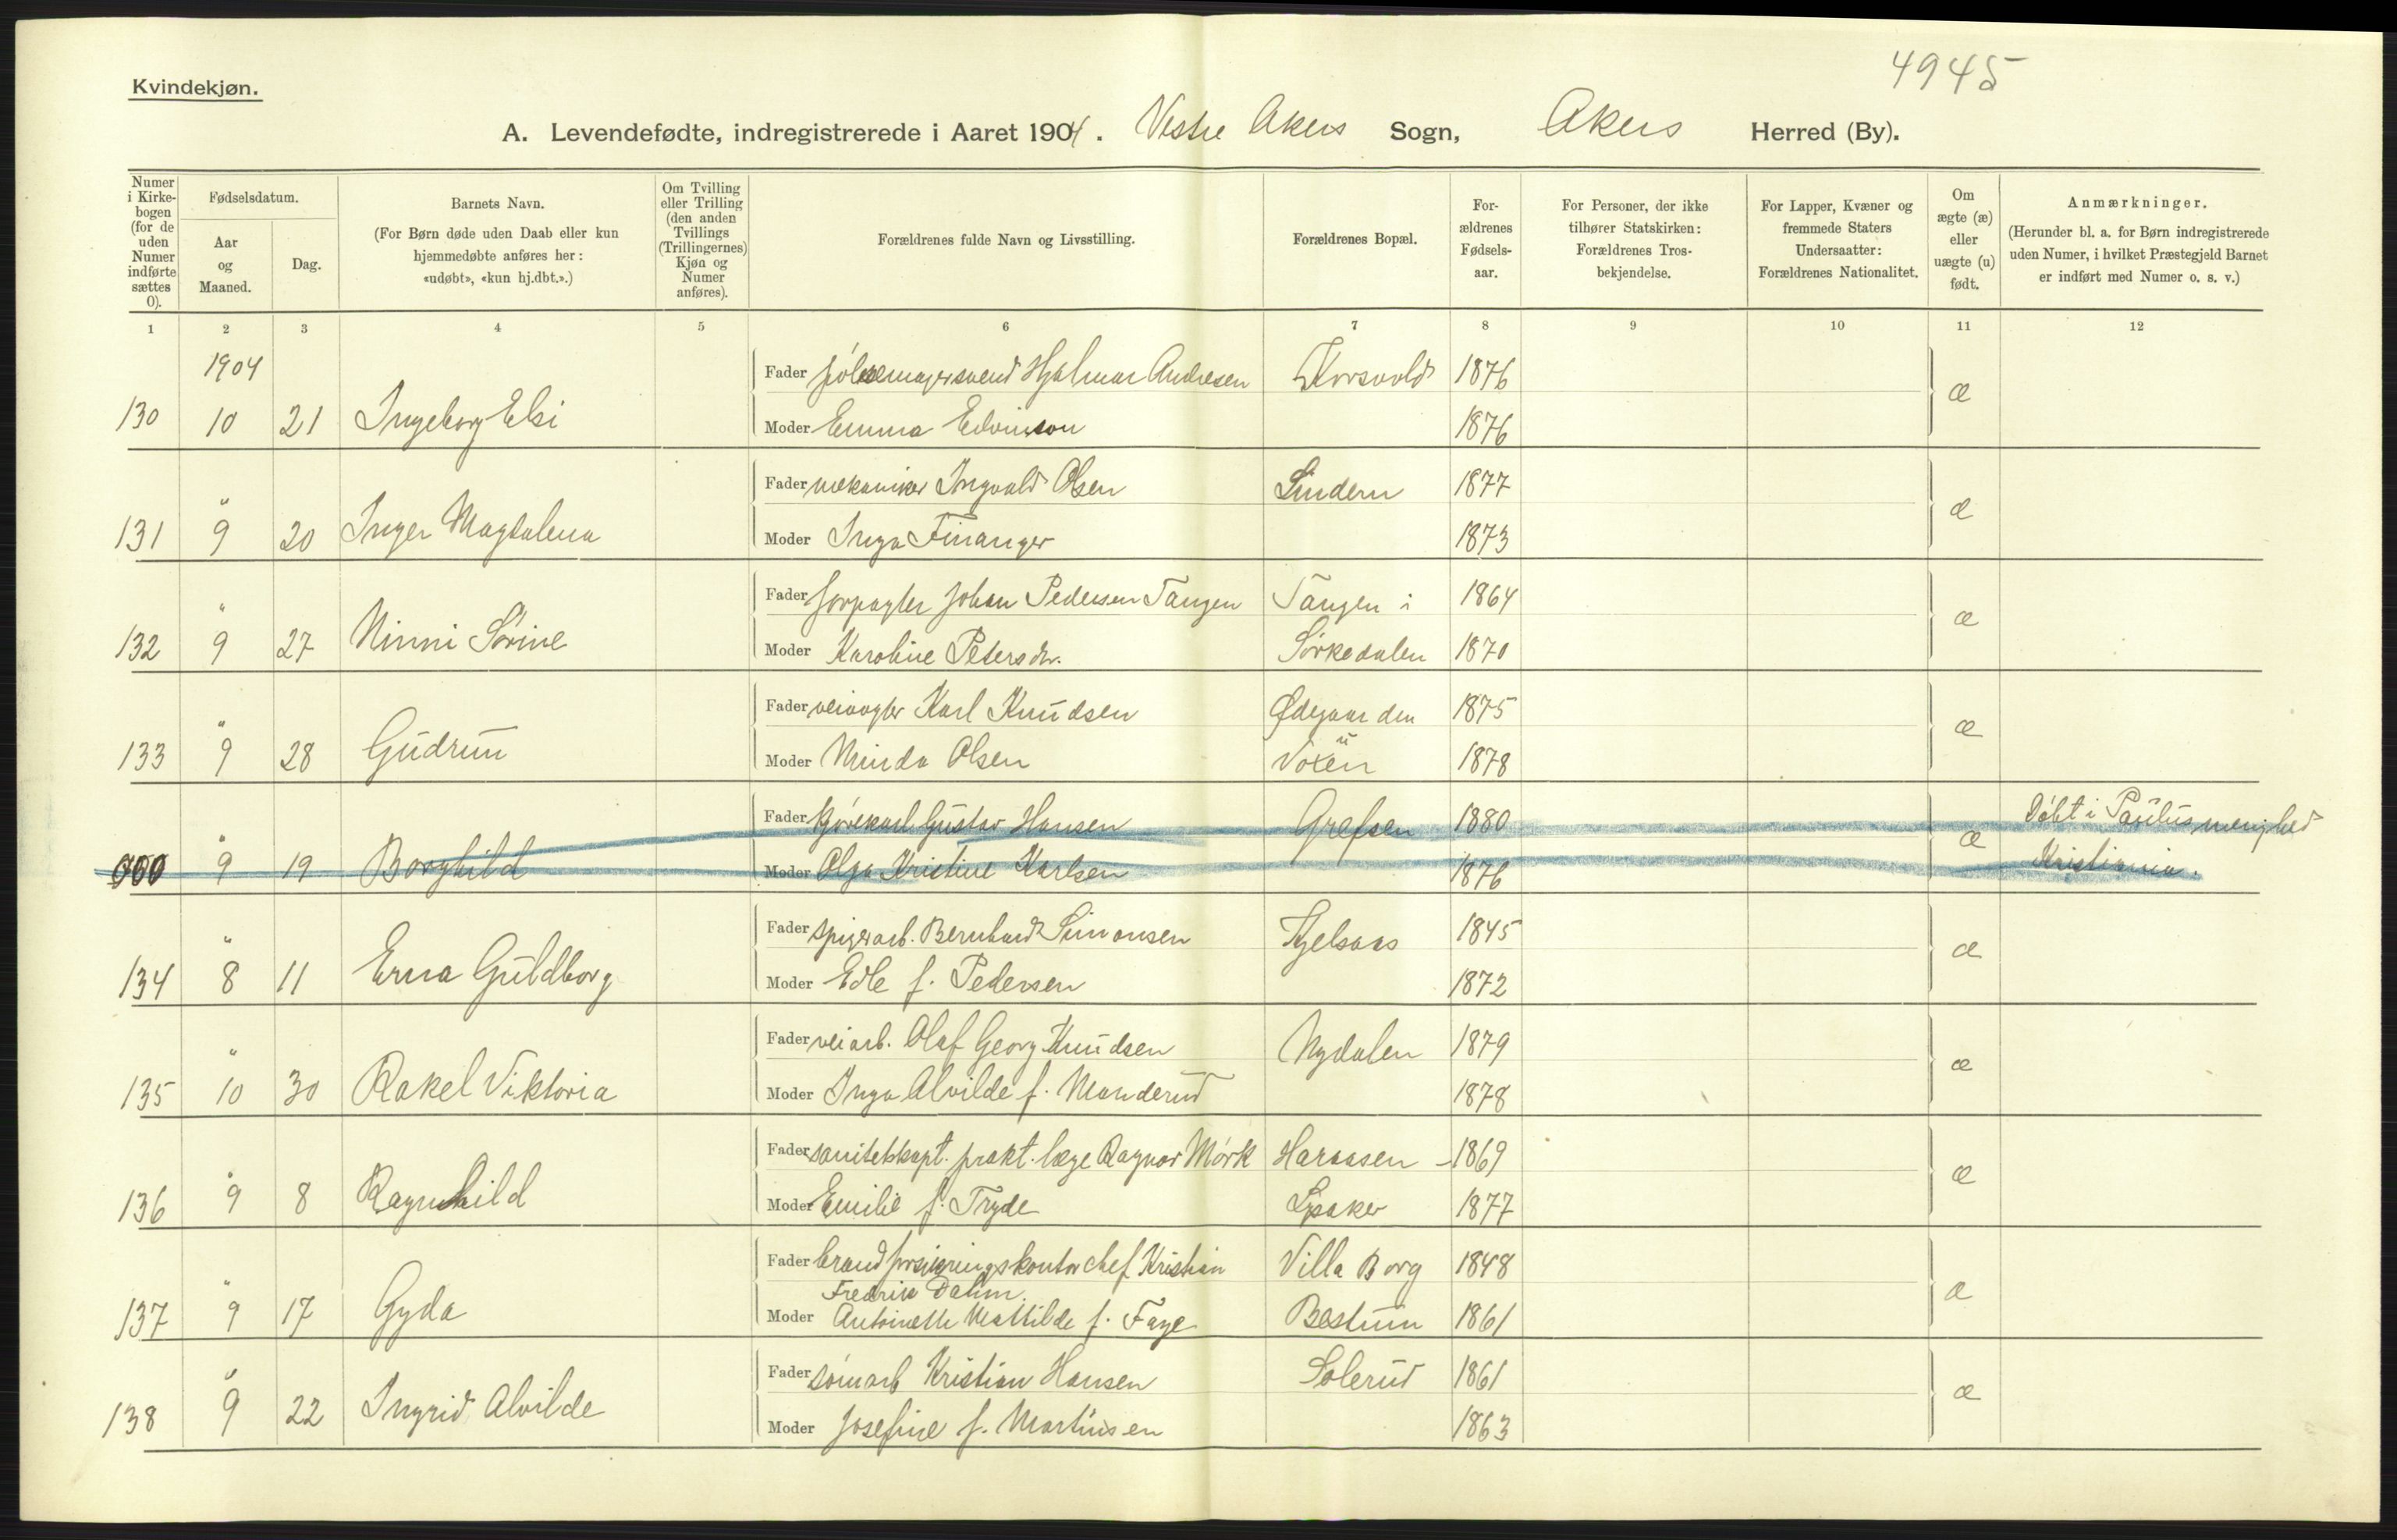 4945
Kvindekjøn.
A. Levendefødte, indregistrerede i Aaret 1904. Vestre Akers Sogn, Akers Herred (By).
Numer i Kirke-bogen (for de uden Numer indførte sættes 0).
Fødselsdatum.
Aar og Maaned.
Dag.
Barnets Navn.
(For Børn døde uden Daab eller kun hjemmedøbte anføres her: «udøbt», «kun hj.dbt.».)
Om Tvilling eller Trilling (den anden Tvillings (Trillingernes) Kjøn og Numer anføres).
Forældrenes fulde Navn og Livsstilling.
Forældrenes Bopæl.
For-ældrenes Fødsels-aar.
For Personer, der ikke tilhører Statskirken: Forældrenes Tros-bekjendelse.
For Lapper, Kvæner og fremmede Staters Undersaatter: Forældrenes Nationalitet.
Om ægte (æ) eller uægte (u) født.
Anmærkninger.
(Herunder bl. a. for Børn indregistrerede uden Numer, i hvilket Præstegjeld Barnet er indført med Numer o. s. v.)
1 2 3 4 5 6 7 8 9 10 11 12
1904
Fader pølsemagersvend Hjalmar Andresen Korsvold 1876
130 10 21 Ingeborg Elsi æ
Moder Emma Edvinson 1876
Fader mekaniker Ingvald Olsen Lindern 1877
131 " 9 20 Inger Magdalena æ
Moder Inga Finanger 1873
Fader forpagter Johan Pedersen Tangen Tangen i 1864
132 " 9 27 Ninni Sørine æ
Moder Karoline Petersdr. Sørkedalen 1870
Fader veivogter Karl Knudsen Ødegaarden 1875
133 " 9 28 Gudrun æ
Moder Minda Olsen u Voxen 1878
Fader kjørekarl Gustav Hansen Grefsen 1880 Døbt i Paulus menighed
000 " 9 19 Borghild æ
Moder Olga Kristine Karlsen 1876 Kristiania.
Fader spigerarb. Bernhard Simonsen Kjelsaas 1845
134 " 8 11 Erna Guldborg æ
Moder Edle f. Pedersen 1872
Fader veiarb. Olaf Georg Knudsen Nydalen 1879
135 " 10 30 Rakel Viktoria æ
Moder Inga Alvilde f. Manderud 1878
Fader sanitetskapt. prakt. læge Ragnar Mørk Haraasen - 1869
136 " 9 8 Ragnhild æ
Moder Emilie f. Tryde Lysaker 1877
Fader brandforsikringskontorchef Kristian Villa Borg 1848
Fredrik Dahm.
137 " 9 17 Gyda æ
Moder Antoinette Mathilde f. Faye Bestum 1861
Fader sømarb Kristian Hansen Solerud 1861
138 " 9 22 Ingrid Alvilde æ
Moder Josefine f. Martinsen 1863